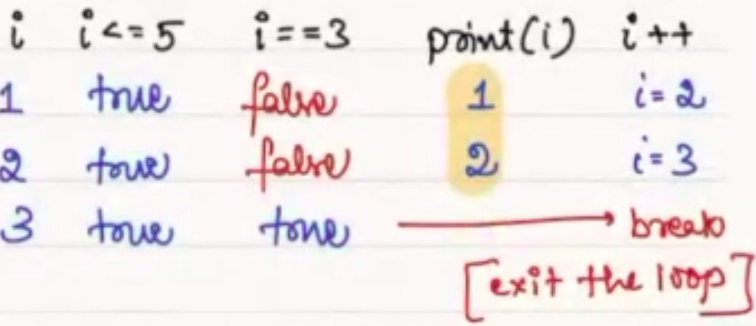 i i<=5 i==3 print(i) i++
1 true false 1 i=2
2 true false 2 i=3
3 true true break
[exit the loop]